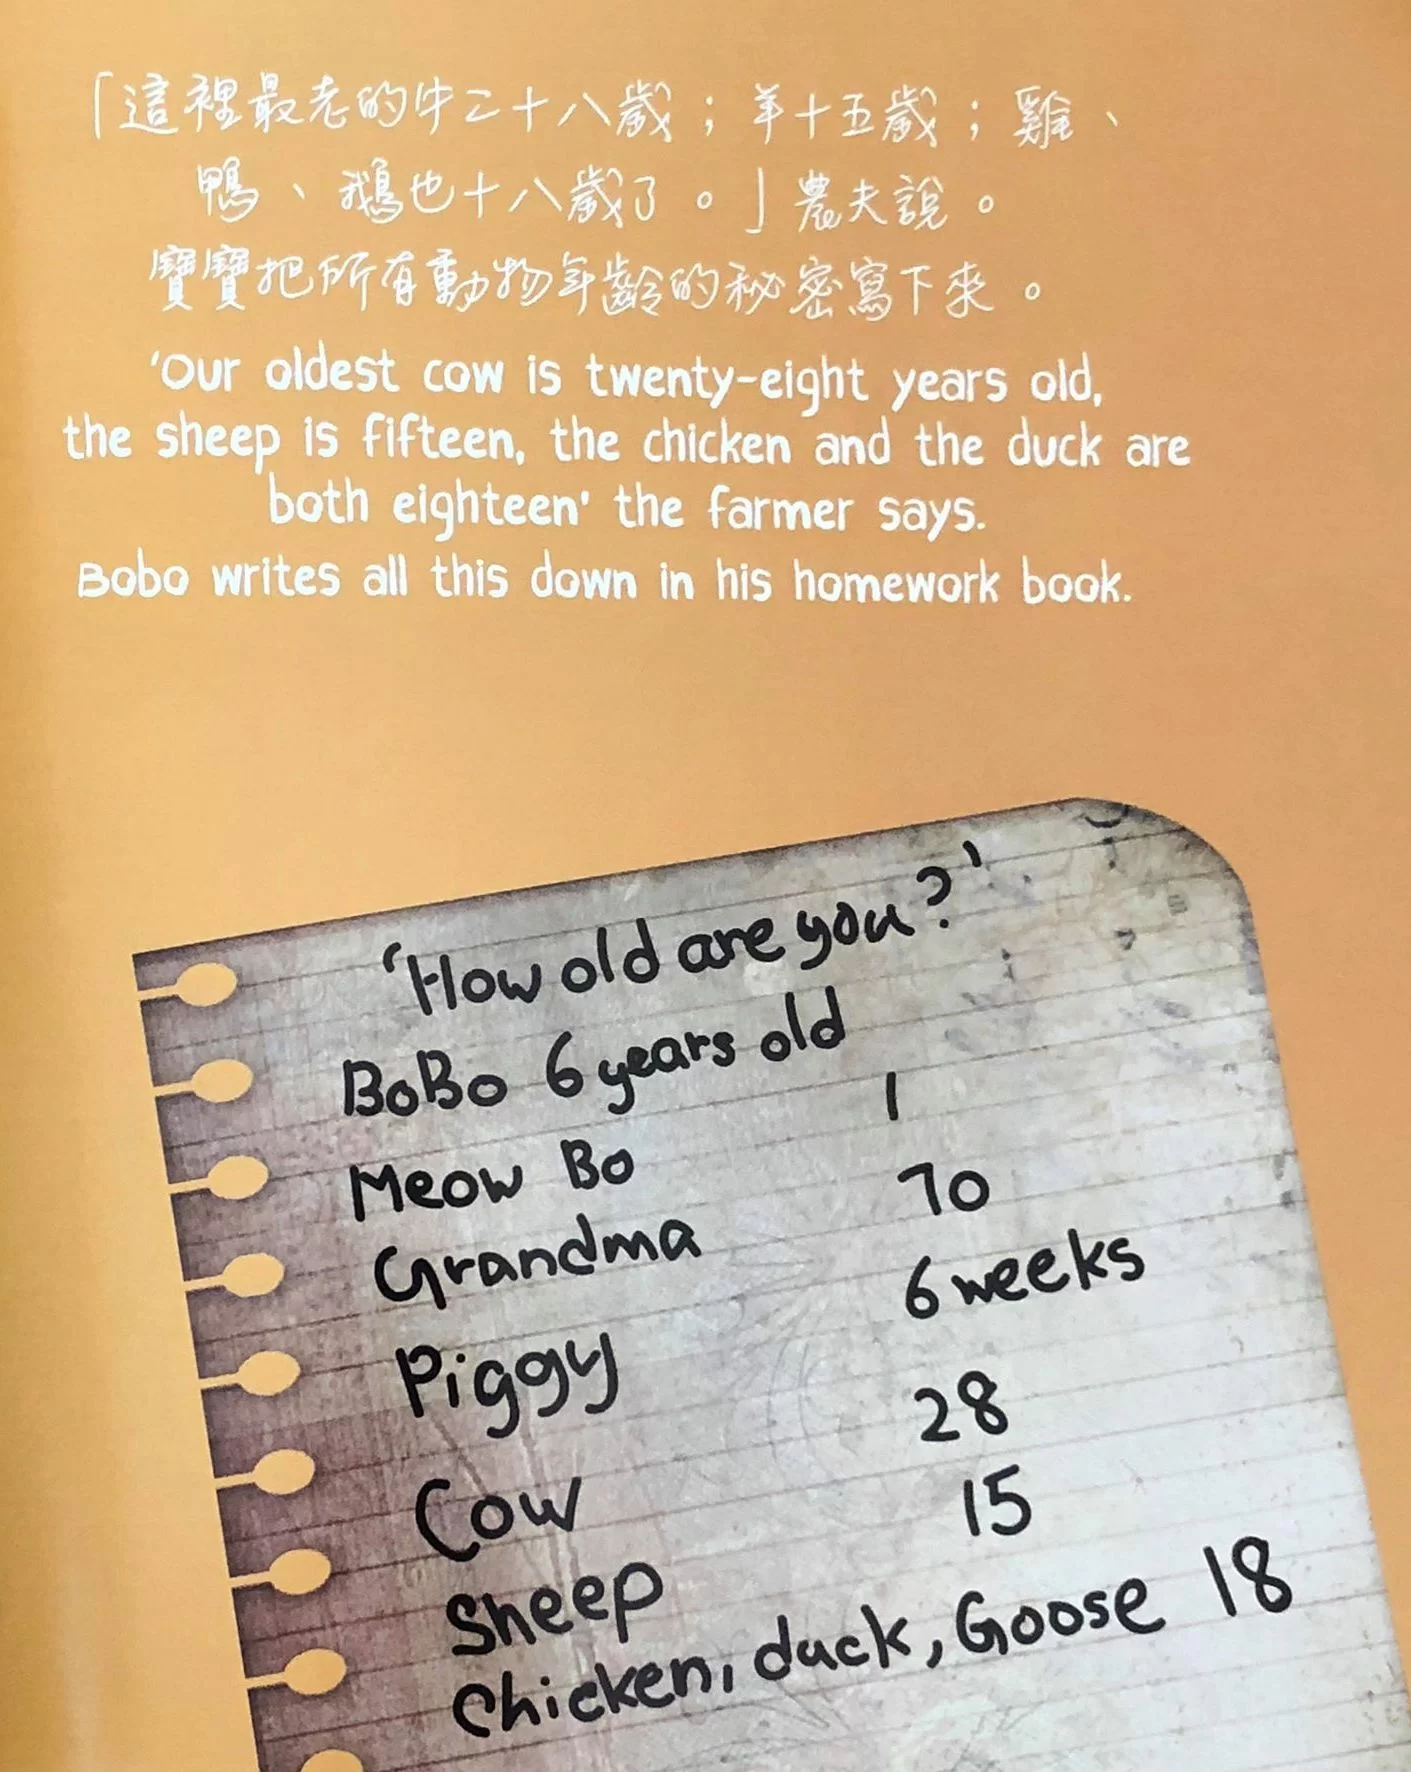 「這裡最老的牛二十八歲；羊十五歲；雞、
鴨、鵝也十八歲了。」農夫說。
寶寶把所有動物年齡的秘密寫下來。
'Our oldest cow is twenty-eight years old,
the sheep is fifteen, the chicken and the duck are
both eighteen' the farmer says.
Bobo writes all this down in his homework book.
'How old are you?'
BoBo 6 years old
Meow Bo 1
Grandma 70
Piggy 6 weeks
Cow 28
Sheep 15
Chicken, duck, Goose 18